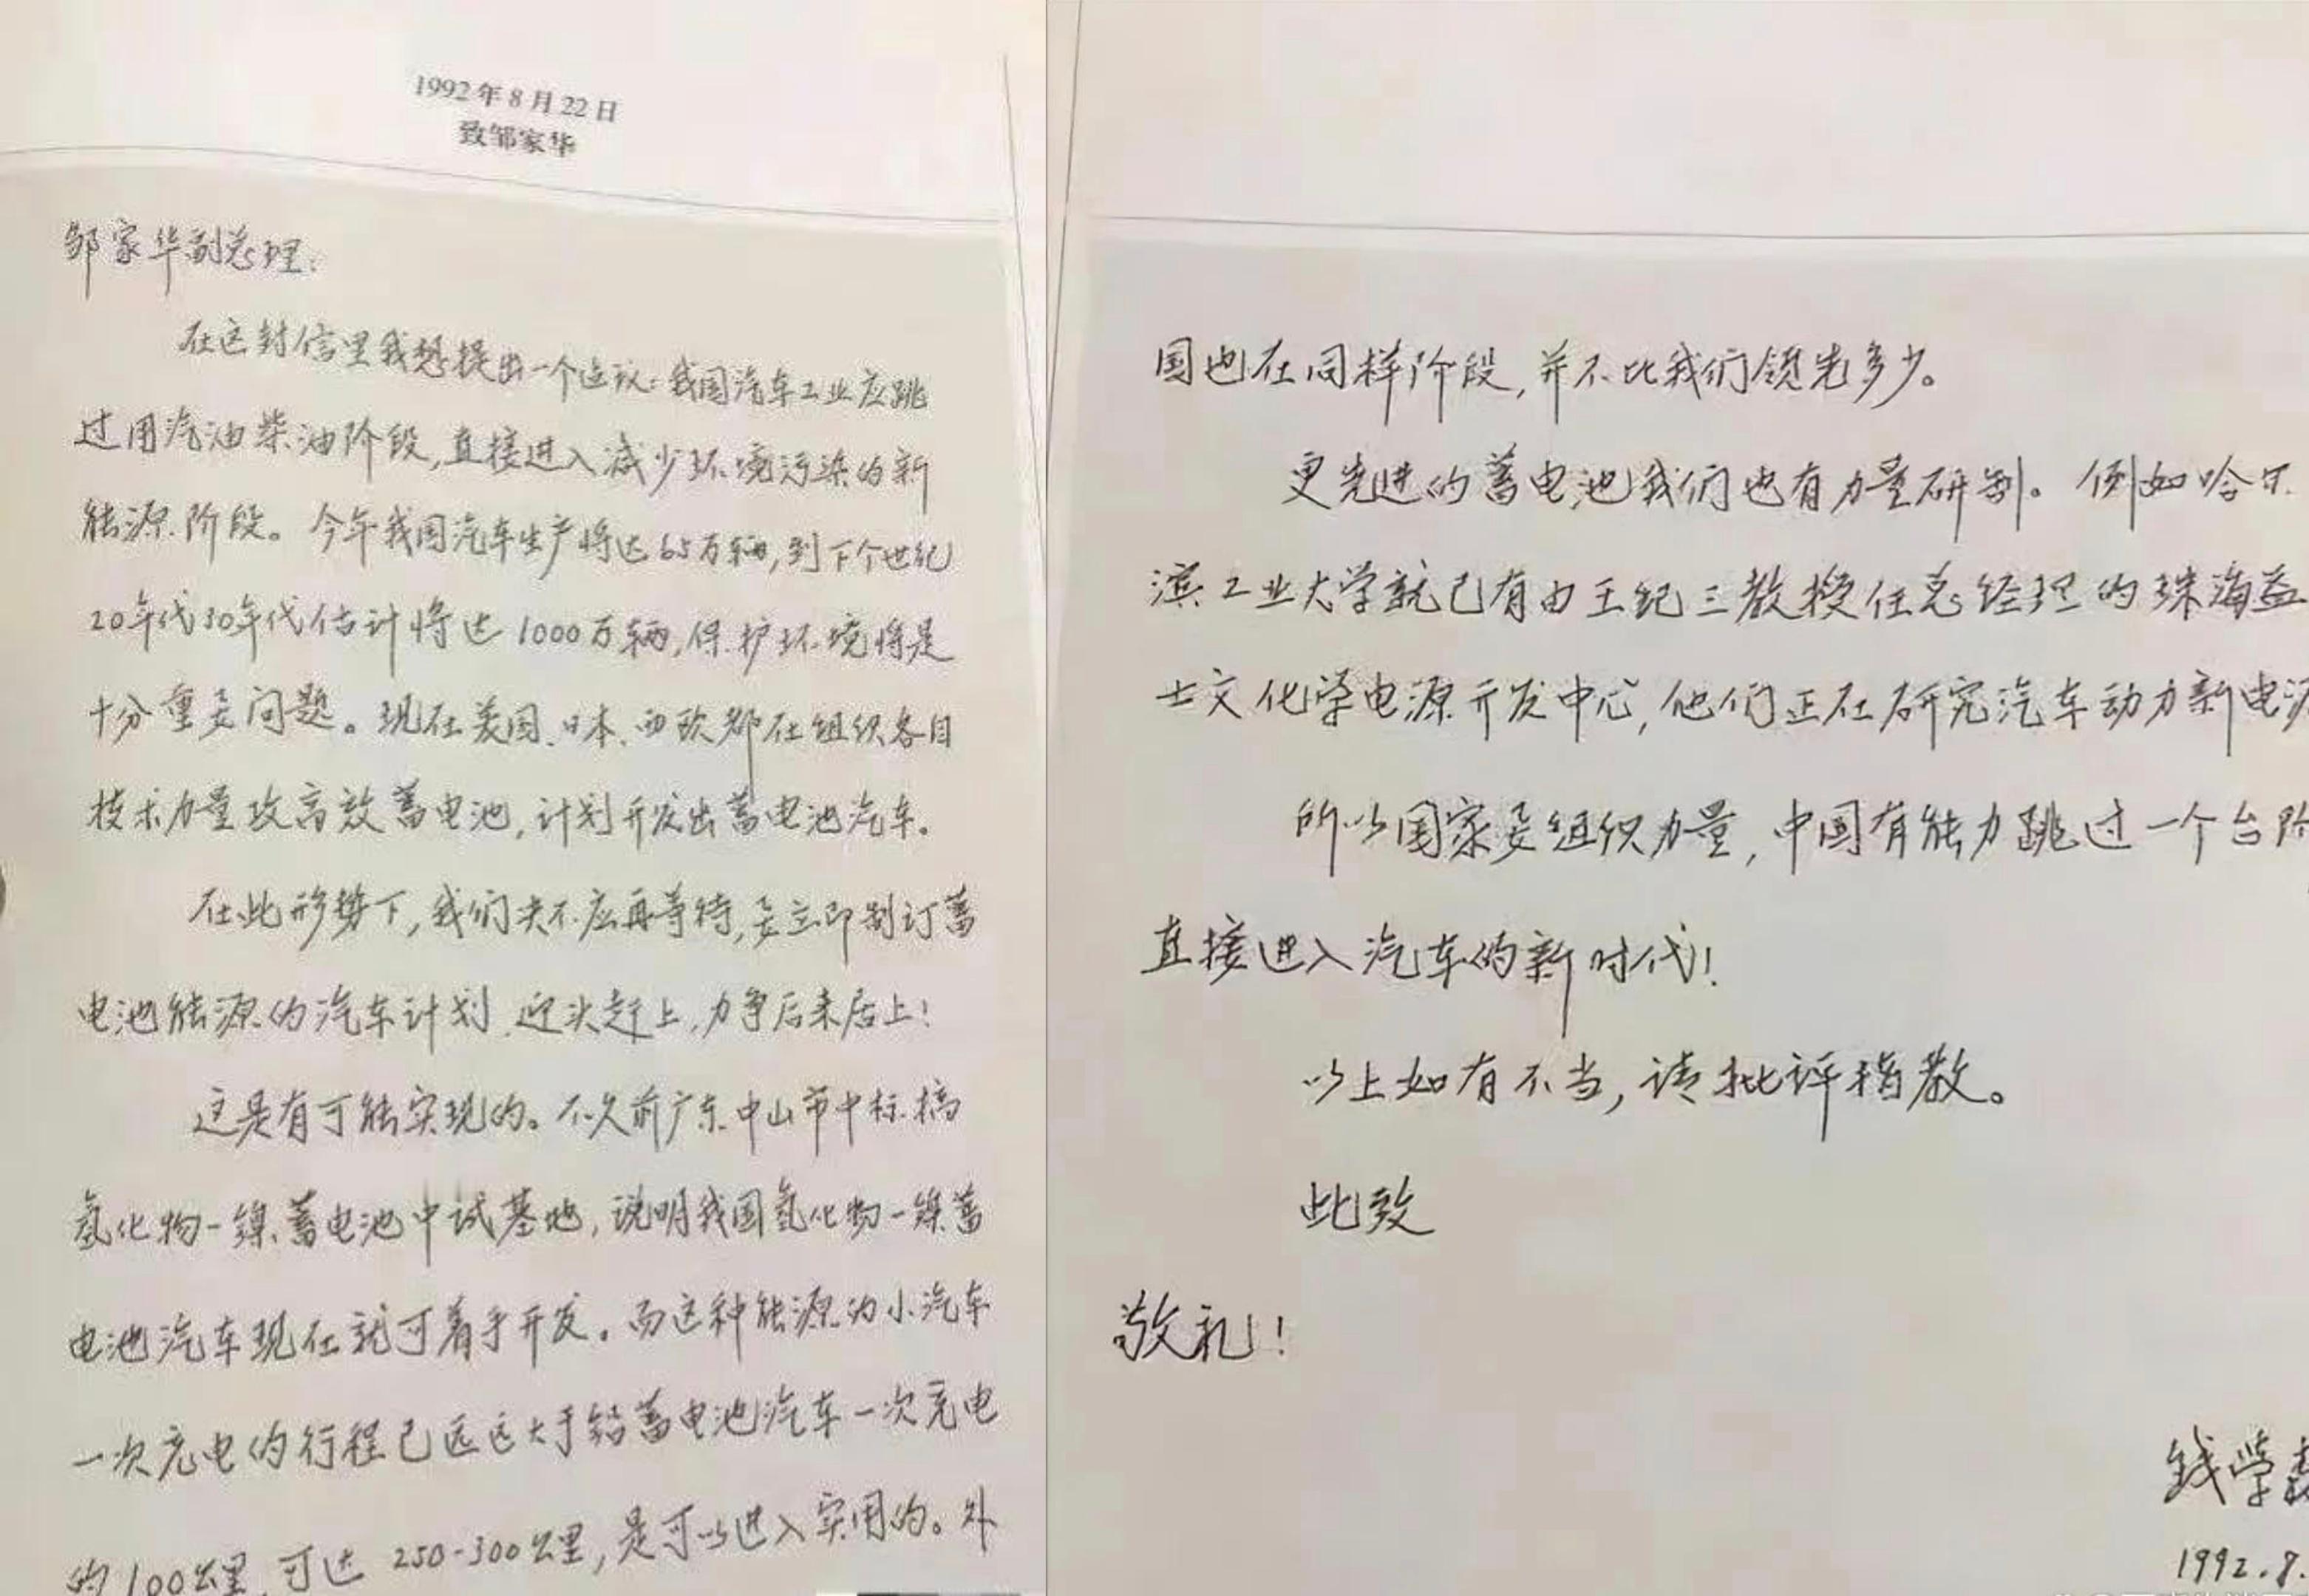 1992年8月22日
致邹家华
邹家华副总理:
在这封信里我想提出一个建议:我国汽车工业应跳
过用汽油柴油阶段,直接进入减少环境污染的新
能源阶段。今年我国汽车生产将达65万辆,到下个世纪
20年代30年代估计将达1000万辆,保护环境将是
十分重要问题。现在美国、日本、西欧都在组织各自
技术力量攻高效蓄电池,计划开发出蓄电池汽车。
在此形势下,我们决不应再等待,要立即制订蓄
电池能源的汽车计划,迎头赶上,力争后来居上!
这是有可能实现的。不久前广东中山市中标搞
氢化物-镍蓄电池中试基地,说明我国氢化物-镍蓄
电池汽车现在就可着手开发。而这种能源的小汽车
一次充电的行程已远远大于铅蓄电池汽车一次充电
的100公里,可达250-300公里,是可以进入实用的。外
国也在同样阶段,并不比我们领先多少。
更先进的蓄电池我们也有力量研制。例如哈尔
滨工业大学就已有由王纪三教授任总经理的珠海益
士文化学电源开发中心,他们正在研究汽车动力新电源
所以国家要组织力量,中国有能力跳过一个台阶
直接进入汽车的新时代!
以上如有不当,请批评指教。
此致
敬礼!
钱学森
1992.8.